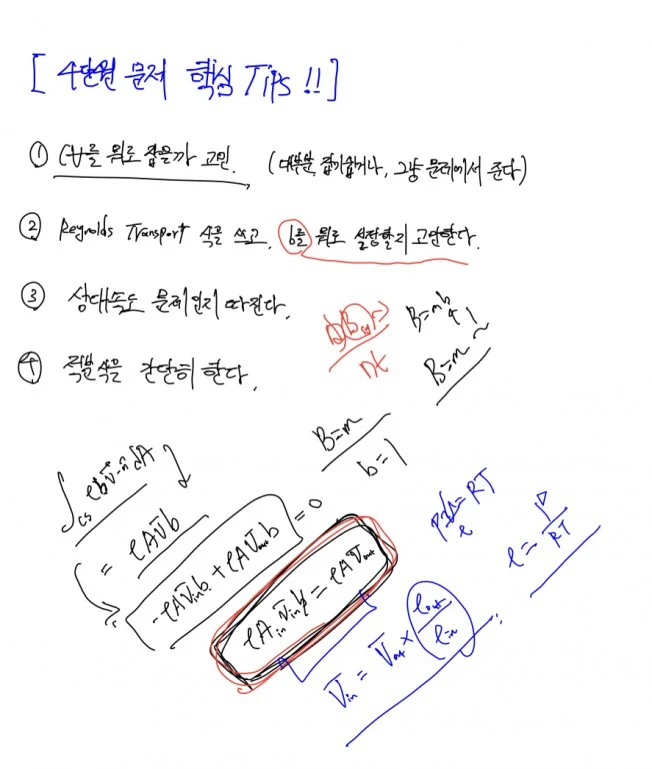 [ 4단원 문제 핵심 Tips !! ]
① CV를 뭐로 잡을까 고민. (대부분 잡기쉽거나, 그냥 문제에서 준다)
② Reynolds Transport 식을 쓰고, b를 뭐로 설정할지 고민한다.
③ 상대속도 문제인지 따진다.
④ 적분식을 간단히 한다.
DBsys
Dt
B=mb
B=m
B=m
b=1
∫cs ρb v̄·n̂ dA
= ρAV̄b
-ρAV̄inb + ρAV̄outb = 0
ρAinV̄inb = ρAV̄out
V̄in = V̄out × ρout/ρin
= RT
ρ = P/RT